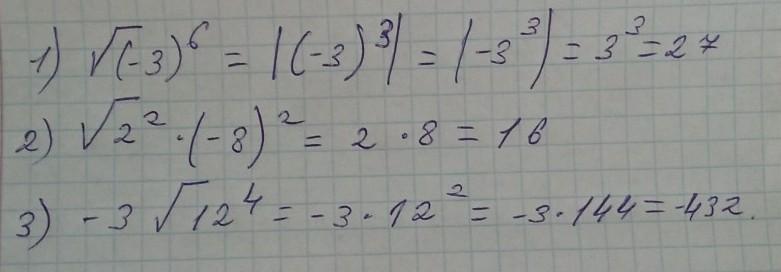 1) √(-3)⁶ = |(-3)³| = |-3³| = 3³ = 27
2) √2² · (-8)² = 2 · 8 = 16
3) -3 √12⁴ = -3 · 12² = -3 · 144 = -432.